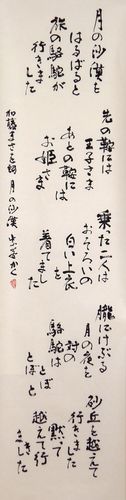 月の沙漠を
はるばると
旅の駱駝が
行きました
先の鞍には
王子さま
あとの鞍には
お姫さま
乗た二人は
おそろいの
白い上衣を
着てました
朧にけぶる
月の夜を
対の
駱駝は
とぼ
とぼと
砂丘を越えて
行きました
黙って
越えて行
きました
加藤まさを詞 月の沙漠